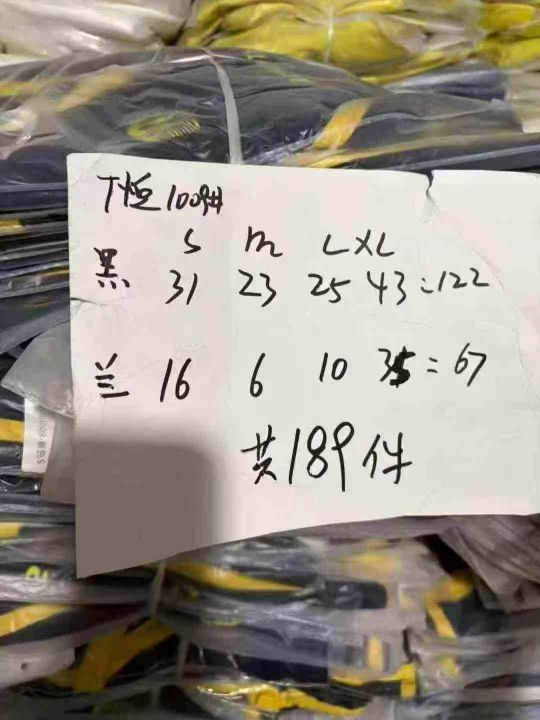 T恒1009#
S M L XL
黑 31 23 25 43=122
兰 16 6 10 35=67
共189件